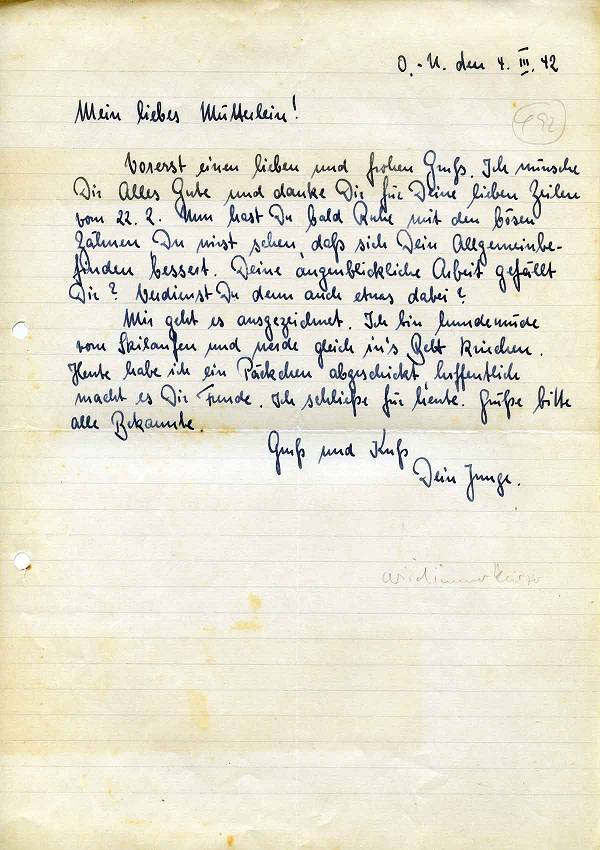 O.-U. den 4. III. 42
Mein liebes Mütterlein!
Vorerst einen lieben und frohen Gruß. Ich wünsche
Dir Alles Gute und danke Dir für Deine lieben Zeilen
vom 22. 2. Nun hast Du bald Ruhe mit den bösen
Zähnen Du wirst sehen, daß sich Dein Allgemeinbe-
finden bessert. Deine augenblickliche Arbeit gefällt
Dir? Verdienst Du denn auch etwas dabei?
Mir geht es ausgezeichnet. Ich bin hundemüde
vom Skilaufen und werde gleich in's Bett kriechen.
Heute habe ich ein Päckchen abgeschickt, hoffentlich
macht es Dir Freude. Ich schließe für heute. Grüße bitte
alle Bekannte.
Gruß und Kuß
Dein Junge.